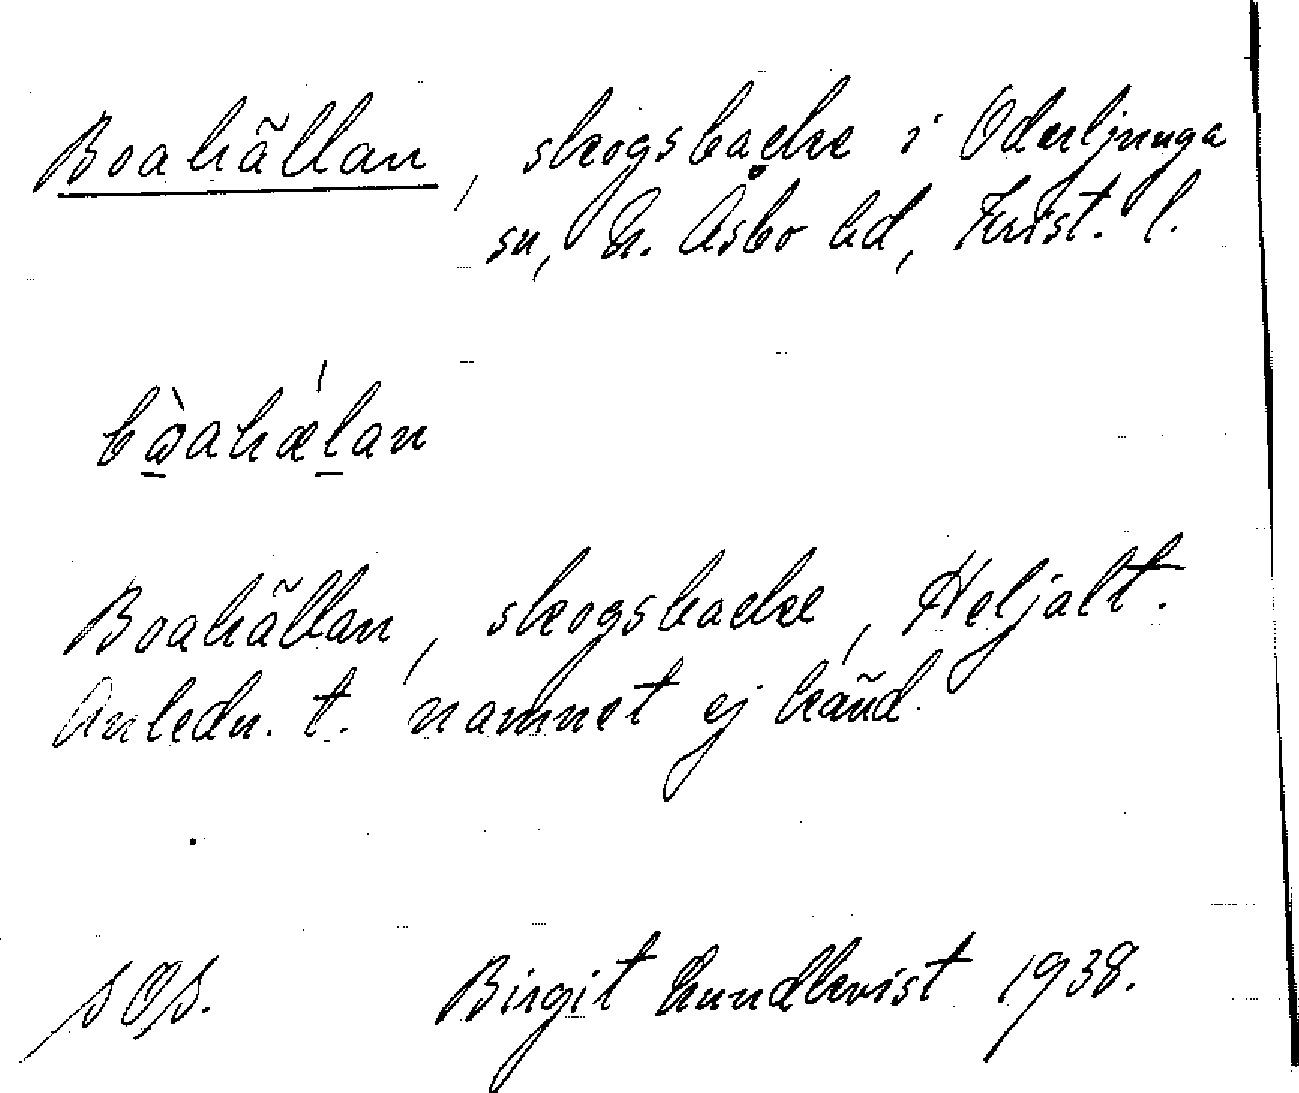 Boahällan, skogsbacke i Oderljunga
sn, N. Åsbo hd, Krist. l.
bòahæ̀lan
Boahällan, skogsbacke, Heljalt.
Anledn. t. namnet ej känd.
Birgit Lundkvist 1938.